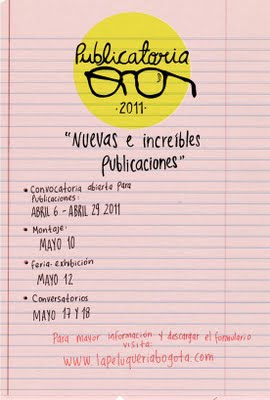 Publicatoria
· 2011 ·
"NUEVAS e increíbles
publicaciones"
• Convocatoria abierta para
Publicaciones:
ABRIL 6 - ABRIL 29 2011
• Montaje:
MAYO 10
• feria-exhibición
MAYO 12
• Conversatorios
MAYO 17 Y 18
Para mayor información y descargar el formulario
visita:
www.lapeluqueriabogota.com